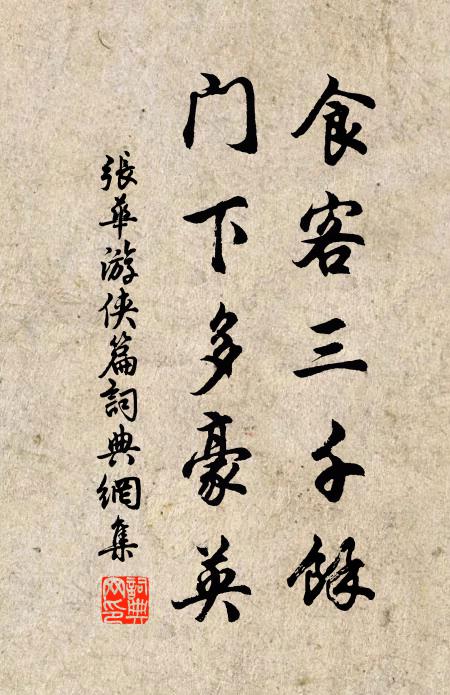 食客三千餘
门下多豪英
張華游侠篇詞典網集
詞典网印